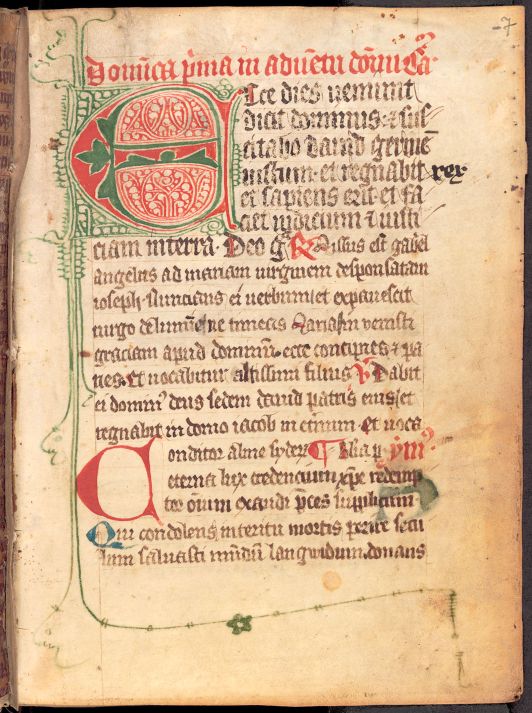 7
Domīica p̄ma in aduētu dom̄i Ca.
Ecce dies ueniunt
dicit dominus · ⁊ sus
citabo dauid germē
iustum · et regnabit rex
et sapiens erit et fa
ciet iudicium ⁊ iusti
ciam in terra · Deo gͣ R̄ Missus est gabͥel
angelus ad mariam uirginem desponsatam
ioseph · Nuncians ei uerbum et expauescit
uirgo de lumīe ne timeas Maria inuenisti
graciam apud dominum · ecce concipies ⁊ pa
ries · Et uocabitur altissimi filius V̄ Dabit
ei domin᷒ deus sedem dauid patris eius et
regnabit in domo iacob in et̄num · Et uoca
Conditor alme syderū ymꝰ
eterna lux credencium xp̄e redemp
tor om̄ium exaudi p̄ces supplicum
Qui condolens interitu mortis perire secu
lum saluasti mūdū langwidum donans